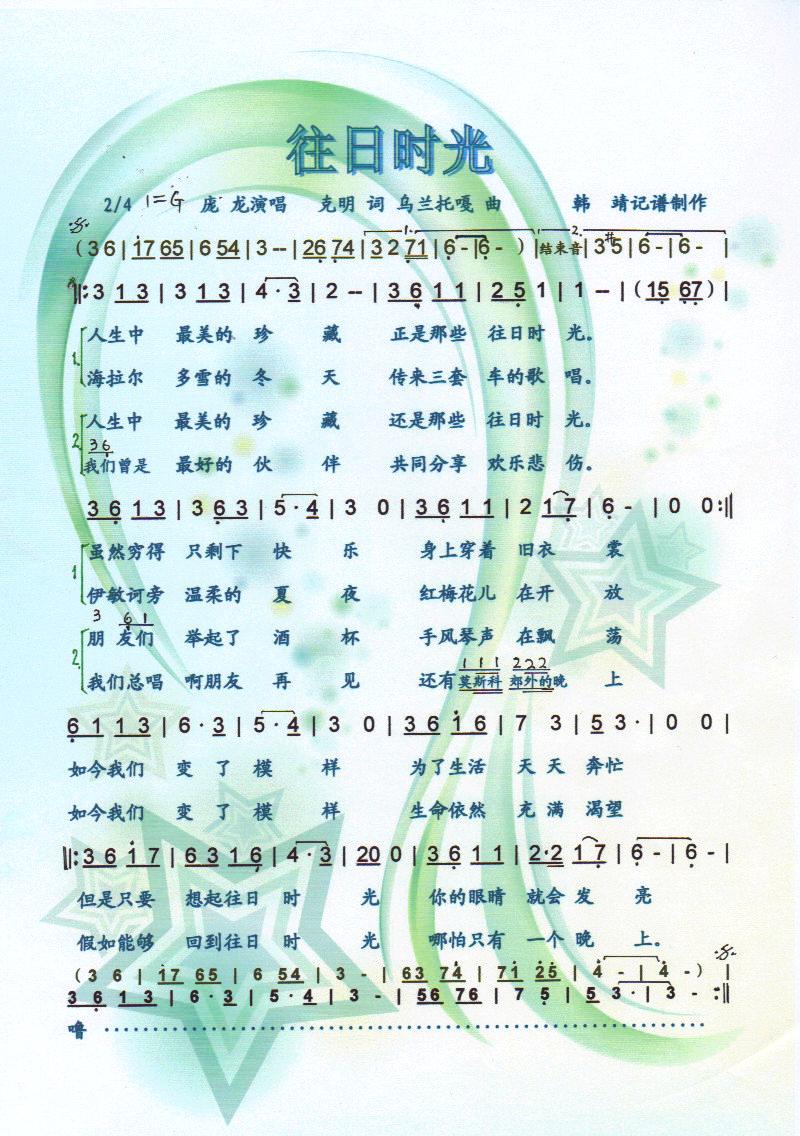 往日时光
2/4 1=G 庞 龙演唱 克明 词 乌兰托嘎 曲 韩 靖记谱制作
(3 6 | 17 65 | 6 54 | 3 -- | 26 74 | 3 2 71 | 6 - | 6 - ) | 结束音 | 3 #5 | 6 - | 6 - |
1. 2.
‖: 3 13 | 3 13 | 4 · 3 | 2 -- | 36 11 | 25 1 | 1 -- | (15 67) |
1. 人生中 最美的 珍 藏 正是那些 往日时 光。
海拉尔 多雪的 冬 天 传来三套 车的歌 唱。
2. 人生中 最美的 珍 藏 还是那些 往日时 光。
36
我们曾是 最好的 伙 伴 共同分享 欢乐悲 伤。
36 13 | 3 63 | 5 · 4 | 3 0 | 36 11 | 2 17 | 6 - | 0 0 :‖
1 虽然穷得 只剩下 快 乐 身上穿着 旧衣 裳
伊敏诃旁 温柔的 夏 夜 红梅花儿 在开 放
3 61
2. 朋 友们 举起了 酒 杯 手风琴声 在飘 荡
111 222
我们总唱 啊朋友 再 见 还有莫斯科 郊外的晚 上
61 13 | 6 · 3 | 5 · 4 | 3 0 | 36 16 | 7 3 | 53 · | 0 0 |
如今我们 变 了 模 样 为了生活 天 天 奔忙
如今我们 变 了 模 样 生命依然 充 满 渴望
‖: 36 17 | 63 16 | 4 · 3 | 20 0 | 36 11 | 2·2 17 | 6 - | 6 - |
但是只要 想起往日 时 光 你的眼睛 就会 发 亮
假如能够 回到往日 时 光 哪怕只有 一个 晚 上。
(3 6 | 17 65 | 6 54 | 3 - | 63 74 | 71 25 | 4 - | 4 - ) |
36 13 | 6 · 3 | 5 · 4 | 3 - | 56 76 | 7 5 | 53 · | 3 - :‖
噜 ……………………………………